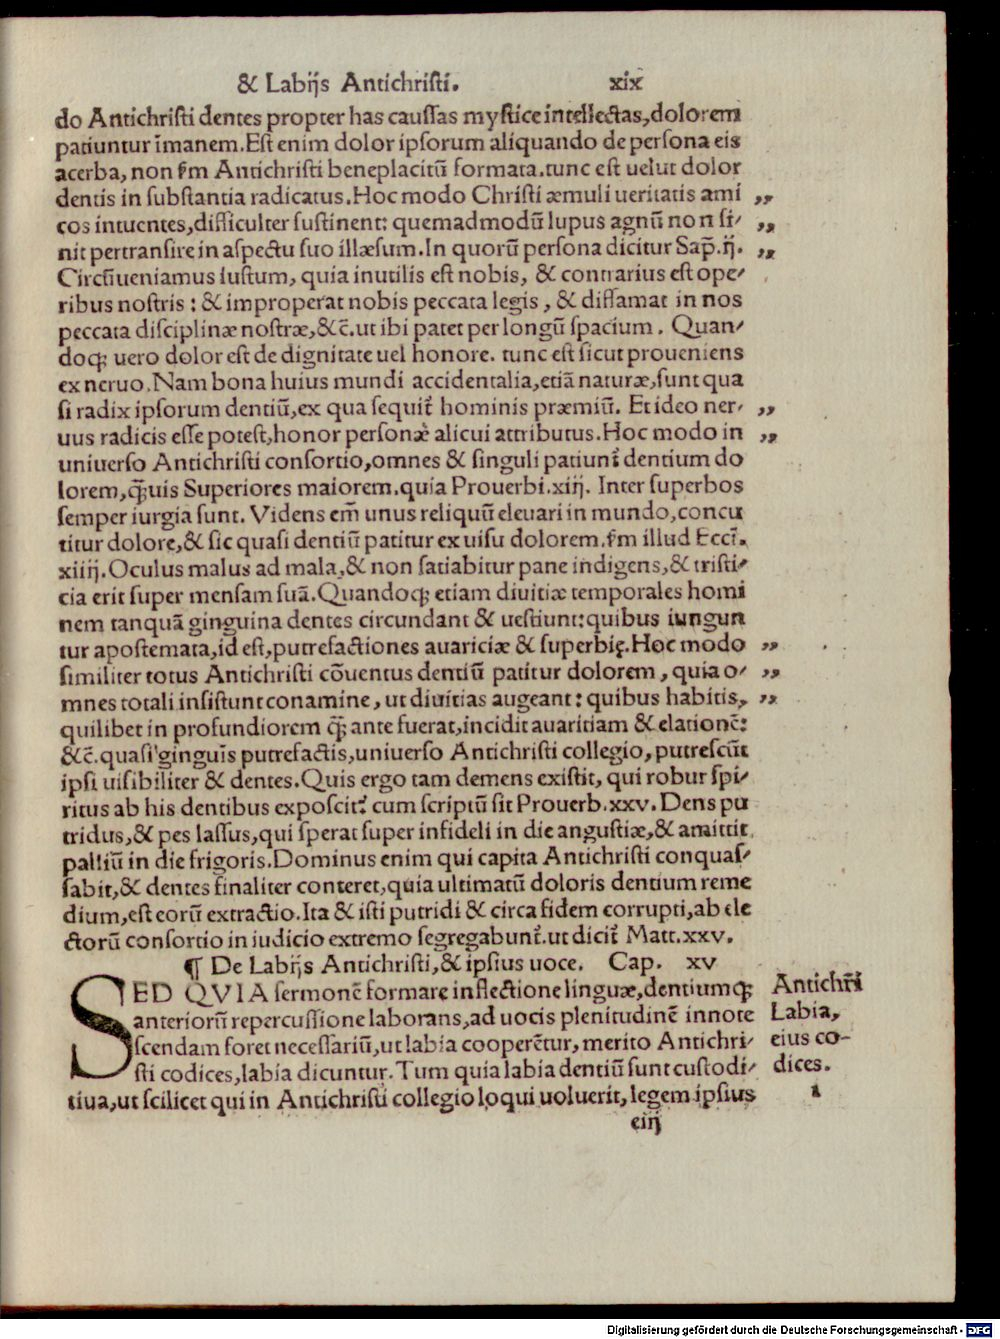 & Labijs Antichristi. xix
do Antichristi dentes propter has caussas mystice intellectas,dolorem
patiuntur īmanem.Est enim dolor ipsorum aliquando de persona eis
acerba, non ẜm Antichristi beneplacitū formata.tunc est uelut dolor
dentis in substantia radicatus.Hoc modo Christi æmuli ueritatis ami „
cos intuentes,difficulter sustinent: quemadmodū lupus agnū non si- „
nit pertransire in aspectu suo illæsum.In quorū persona dicitur Sap̄.ij. „
Circūueniamus iustum, quia inutilis est nobis, & contrarius est ope-
ribus nostris : & improperat nobis peccata legis , & diffamat in nos
peccata disciplinæ nostræ,&c̄.ut ibi patet per longū spacium. Quan-
doqꝫ uero dolor est de dignitate uel honore. tunc est sicut proueniens
ex neruo.Nam bona huius mundi accidentalia,etiā naturæ,sunt qua
si radix ipsorum dentiū,ex qua sequit̄ hominis præmiū. Et ideo ner- „
uus radicis esse potest,honor personæ alicui attributus.Hoc modo in „
uniuerso Antichristi consortio,omnes & singuli patiunt̄ dentium do
lorem,q̄ꝫuis Superiores maiorem.quia Prouerbi.xiij. Inter superbos
semper iurgia sunt. Videns em̄ unus reliquū eleuari in mundo,concu
titur dolore,& sic quasi dentiū patitur ex uisu dolorem.ẜm illud Eccī.
xiiij.Oculus malus ad mala,& non satiabitur pane indigens,& tristi-
cia erit super mensam suā.Quandoqꝫ etiam diuitiæ temporales homi
nem tanquā ginguina dentes circundant & uestiunt:quibus iungun
tur apostemata,id est,putrefactiones auariciæ & superbię.Hoc modo „
similiter totus Antichristi cōuentus dentiū patitur dolorem, quia o- „
mnes totali insistunt conamine, ut diuitias augeant: quibus habitis, „
quilibet in profundiorem q̄ꝫ ante fuerat,incidit auaritiam & elationē:
&c̄.quasi ginguīs putrefactis,uniuerso Antichristi collegio, putrescūt
ipsi uisibiliter & dentes.Quis ergo tam demens existit, qui robur spi-
ritus ab his dentibus exposcit? cum scriptū sit Prouerb.xxv. Dens pu
tridus,& pes lassus,qui sperat super infideli in die angustiæ,& amittit
palliū in die frigoris.Dominus enim qui capita Antichristi conquas-
sabit,& dentes finaliter conteret,quia ultimatū doloris dentium reme
dium,est eorū extractio.Ita & isti putridi & circa fidem corrupti,ab ele
ctorū consortio in iudicio extremo segregabunt̄.ut dicit̄ Matt.xxv.
¶ De Labijs Antichristi,& ipsius uoce. Cap. xv
SED QVIA sermonē formare inflectione linguæ,dentiumqꝫ
anteriorū repercussione laborans,ad uocis plenitudinē innote
scendam foret necessariū,ut labia cooperētur, merito Antichri-
sti codices,labia dicuntur. Tum quia labia dentiū sunt custodi-
tiua,ut scilicet qui in Antichristi collegio loqui uoluerit, legem ipsius
Antichr̄i
Labia,
eius co-
dices.
1
eiij
Digitalisierung gefördert durch die Deutsche Forschungsgemeinschaft - DFG